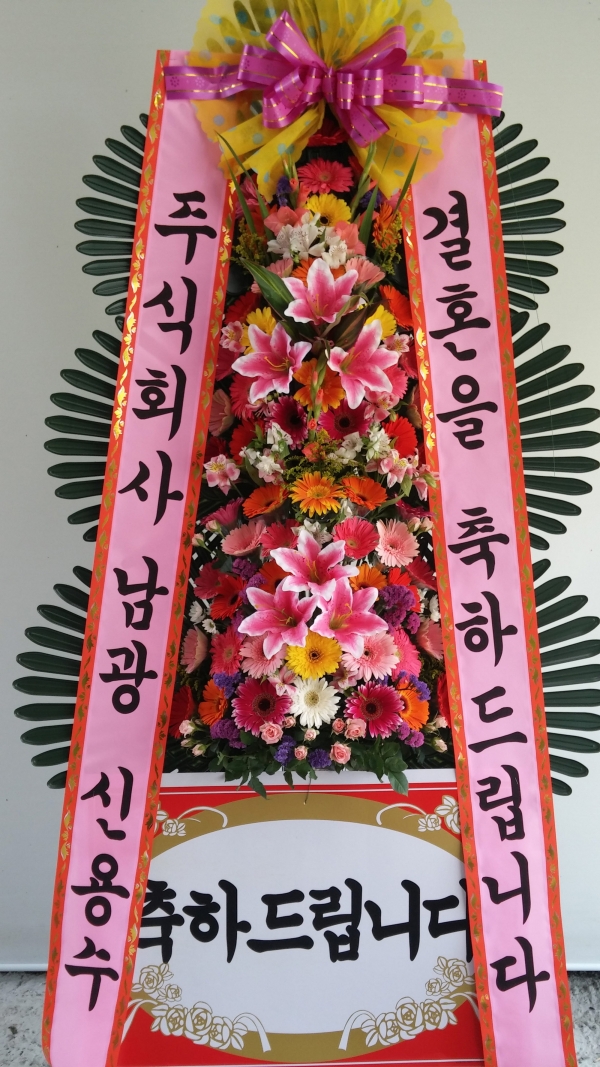 주식회사 남광 신용수
결혼을 축하드립니다
축하드립니다